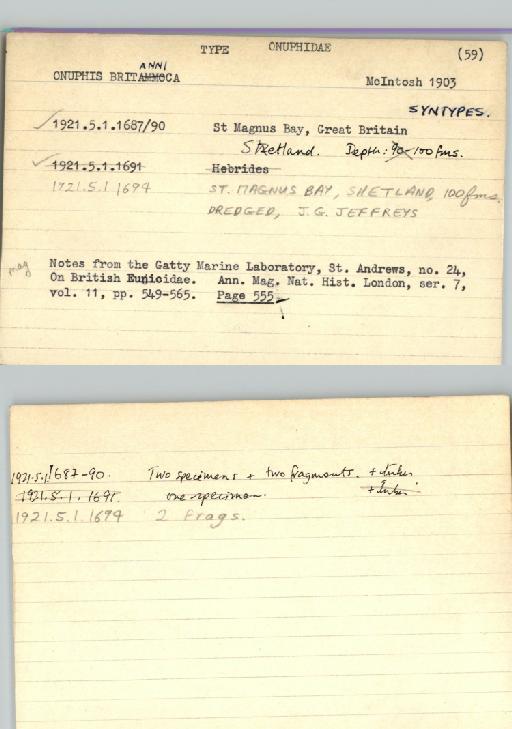 TYPE ONUPHIDAE (59)
ANNI
ONUPHIS BRITAMMOCA McIntosh 1903
SYNTYPES.
1921.5.1.1687/90 St Magnus Bay, Great Britain
Shetland. Depth: 90-100 fms.
1921.5.1.1691 Hebrides
1921.5.1 1694 ST. MAGNUS BAY, SHETLAND, 100 fms.
DREDGED, J. G. JEFFREYS
Notes from the Gatty Marine Laboratory, St. Andrews, no. 24,
mag On British Eunioidae. Ann. Mag. Nat. Hist. London, ser. 7,
vol. 11, pp. 549-565. Page 555
1921.5.1.1687-90. Two specimens + two fragments. + tubes
1921.5.1.1691. one specimen. + tubes.
1921.5.1.1694 2 frags.